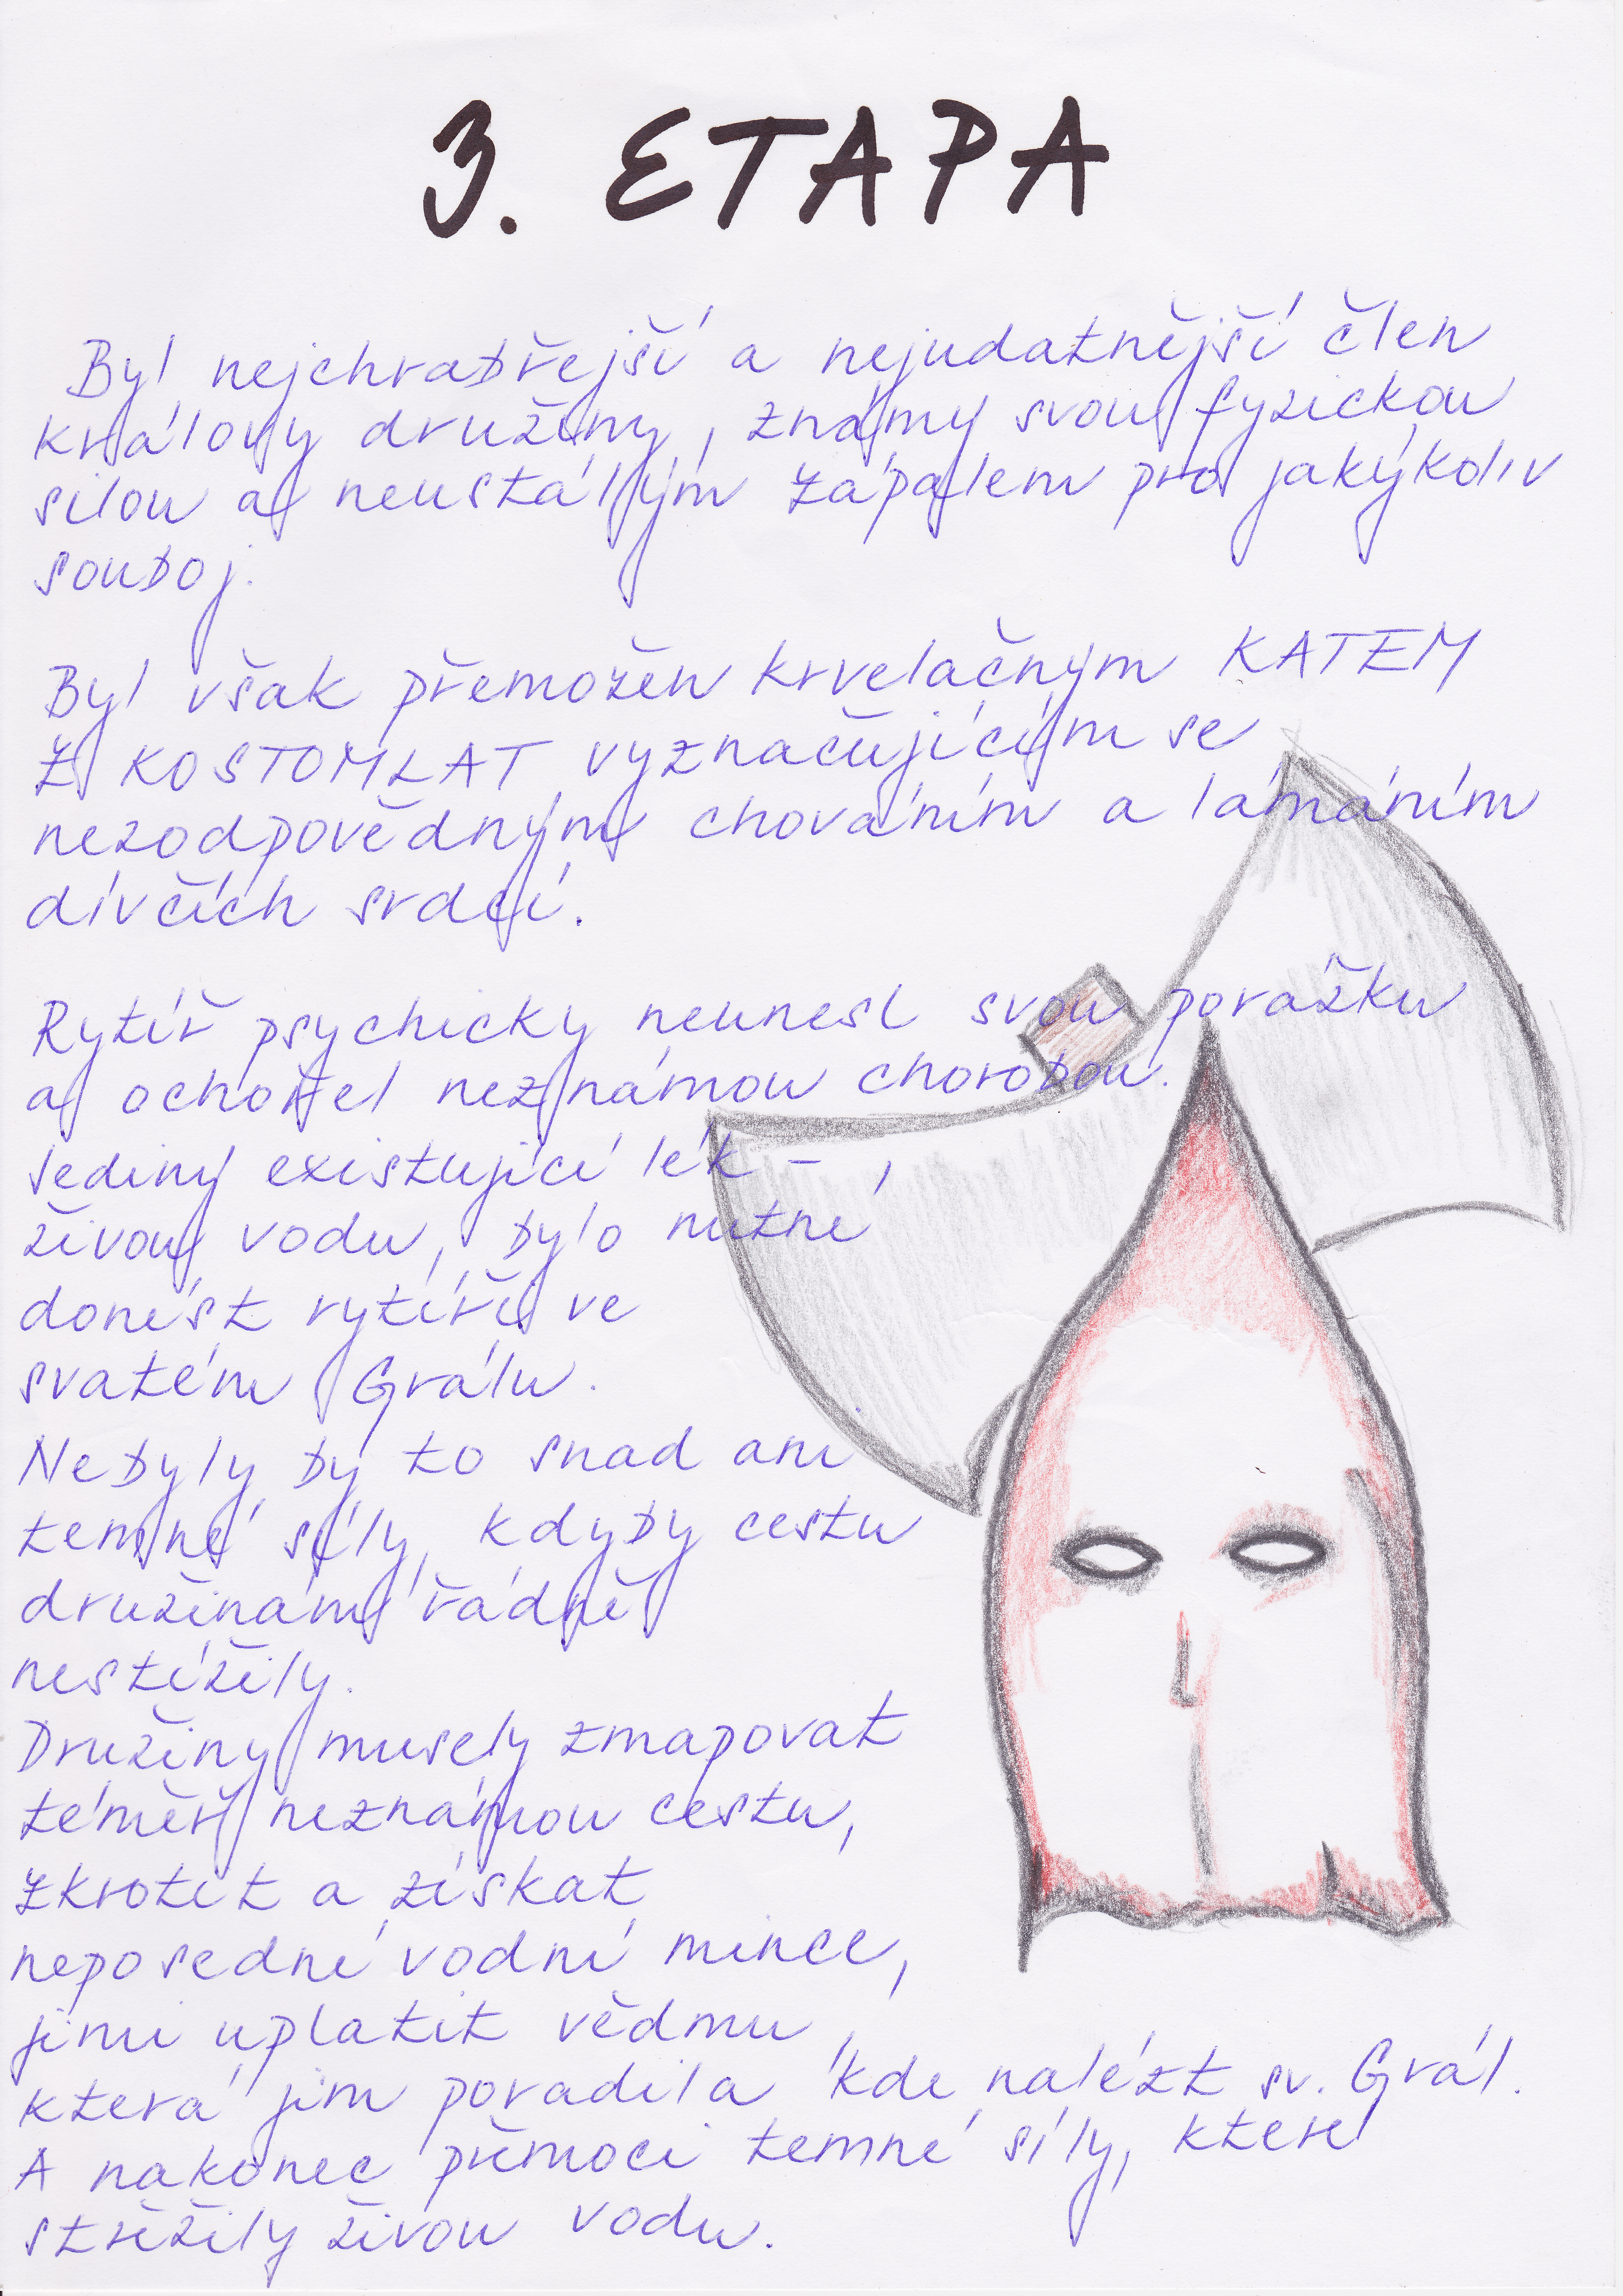 3. ETAPA
Byl nejchrabřejší a nejudatnější člen
královy družiny, známý svou fyzickou
silou a neustálým zápalem pro jakýkoliv
souboj.
Byl však přemožen krvelačným KATEM
Z KOSTOMLAT vyznačujícím se
nezodpovědným chováním a lámáním
dívčích srdcí.
Rytíř psychicky neunesl svou porážku
a ochořel neznámou chorobou.
Jediný existující lék - ,
živou vodu, bylo nutné
donést rytíři ve
svatém Grálu.
Nebyly by to snad ani
temné síly, kdyby cestu
družinám řádně
nestížily.
Družiny musely zmapovat
téměř neznámou cestu,
zkrotit a získat
neposedné vodní mince,
jimi uplatit vědmu,
která jim poradila kde nalézt sv. Grál.
A nakonec přemoci temné síly, které
střežily živou vodu.